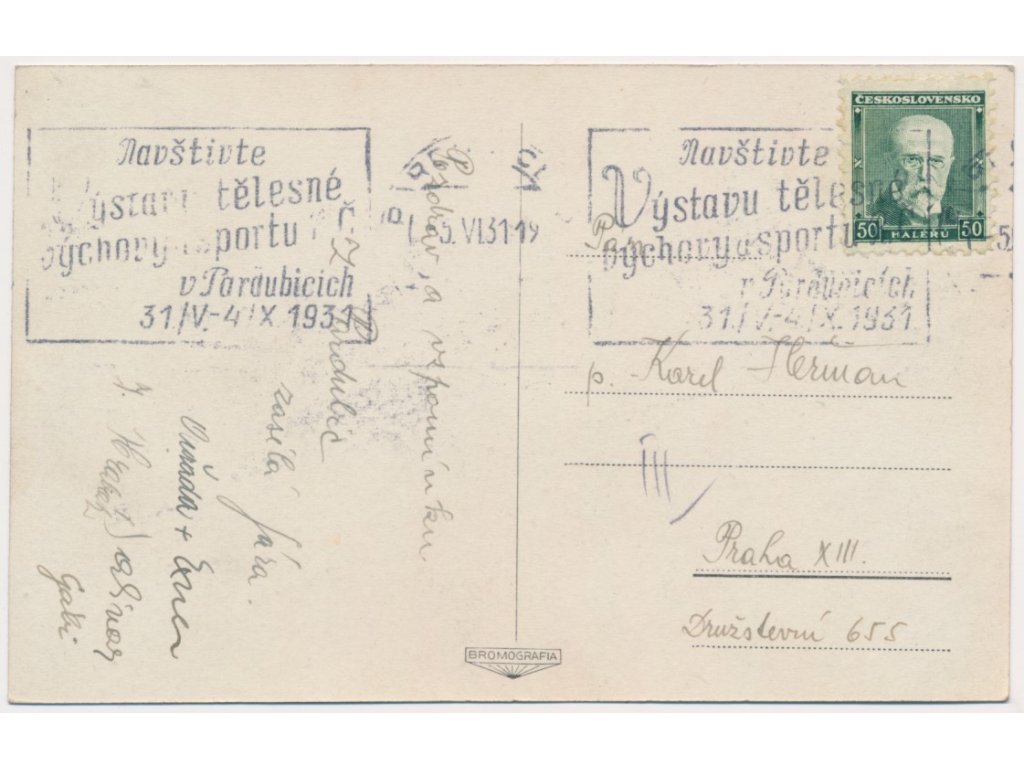 Navštivte
Výstavu tělesné
výchovy a sportu
v Pardubicích
31/V.-4/X 1931
5.VI.31-19
Navštivte
Výstavu tělesné
výchovy a sportu
v Pardubicích
31/V.-4/X.1931
ČESKOSLOVENSKO
50 HALÉŘŮ 50
Pozdrav a vzpomínku
z Pardubic
zasílá Jára.
Gabi
Pan
p. Karel Heřman
III
Praha XIII.
Družstevní 655
BROMOGRAFIA